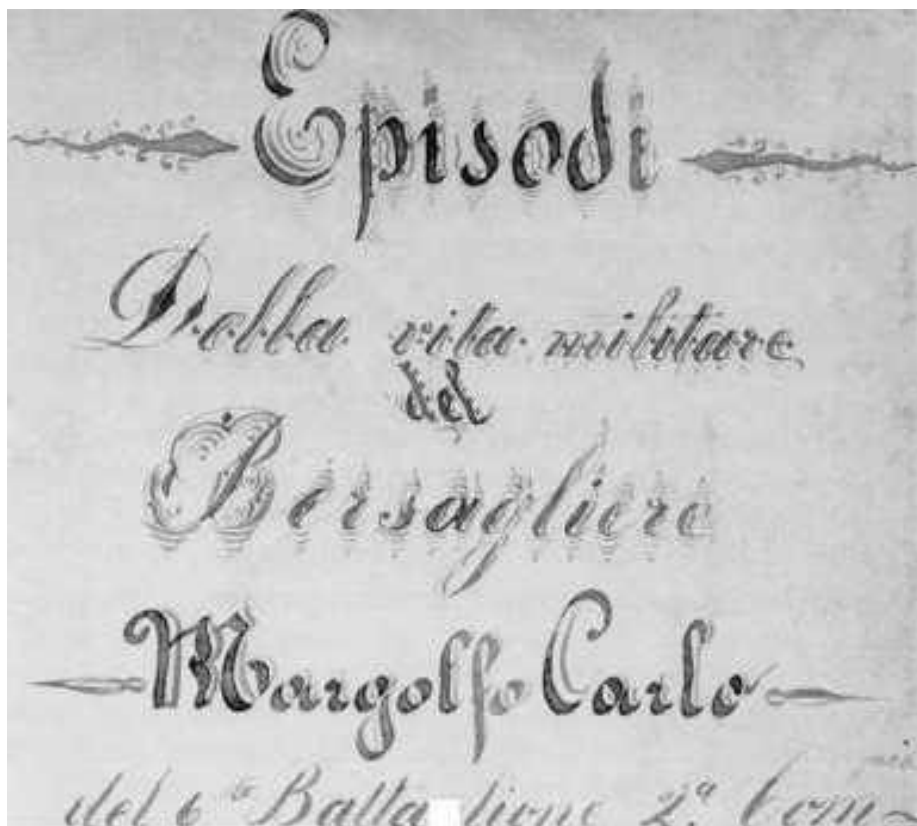 Episodi
Dalla vita militare
del
Bersagliere
Margolfo Carlo
del 6to Battaglione 2a. Com-